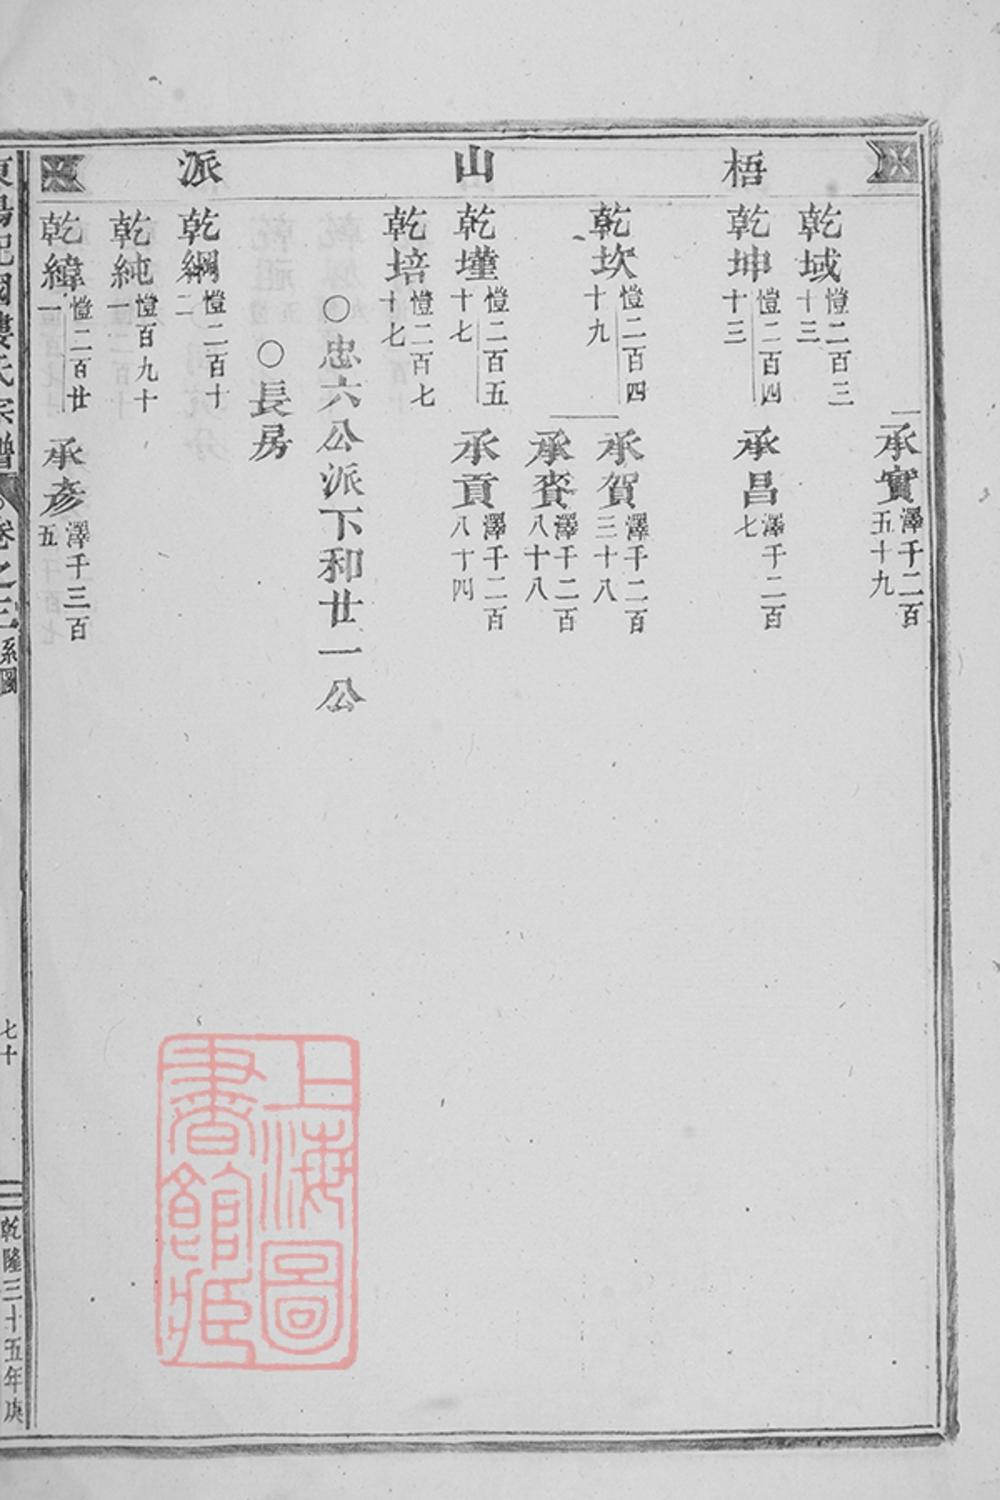 梧山派
承實 澤千二百五十九
乾域 愷二百三十三
乾坤 愷二百四十三 承昌 澤千二百七
乾坎 愷二百四十九 承賀 澤千二百三十八
承賚 澤千二百八十八
乾墐 愷二百五十七 承貢 澤千二百八十四
乾培 愷二百七十七
○忠六公派下和廿一公
○長房
乾綱 愷二百十二
乾純 愷百九十一
乾緯 愷二百廿一 承彥 澤千三百五
東陽杞國婁氏宗譜 卷之三 系圖 七十 乾隆三十五年庚
上海圖書館藏